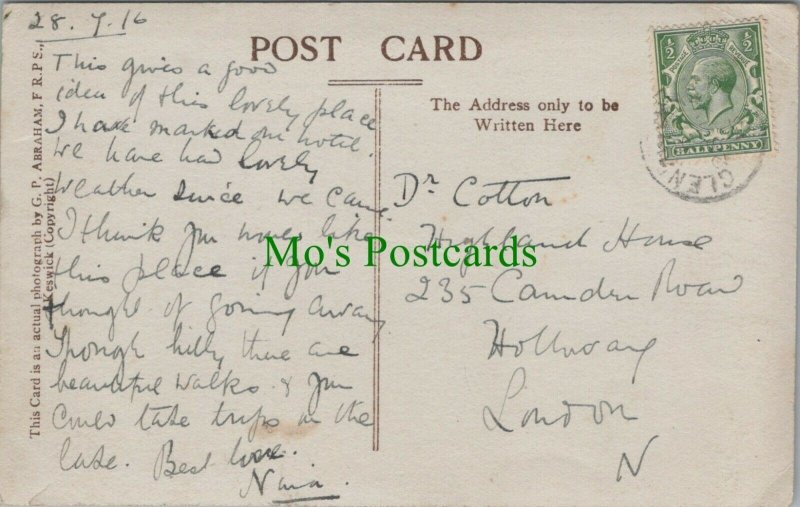 28. 7. 16
POST CARD
This gives a good
idea of this lovely place
I have marked our hotel.
We have had lovely
weather since we came.
I think you would like
this place if you
thought of going away
Though hilly there are
beautiful walks & you
could take trips on the
lake. Best love.
The Address only to be
Written Here
Dr Cotton
Highland House
235 Camden Road
Holloway
London
N
HALFPENNY
½ ½
GLEN
This Card is an actual photograph by G. P. ABRAHAM, F R.P S.,
Keswick (Copyright)
Mo's Postcards